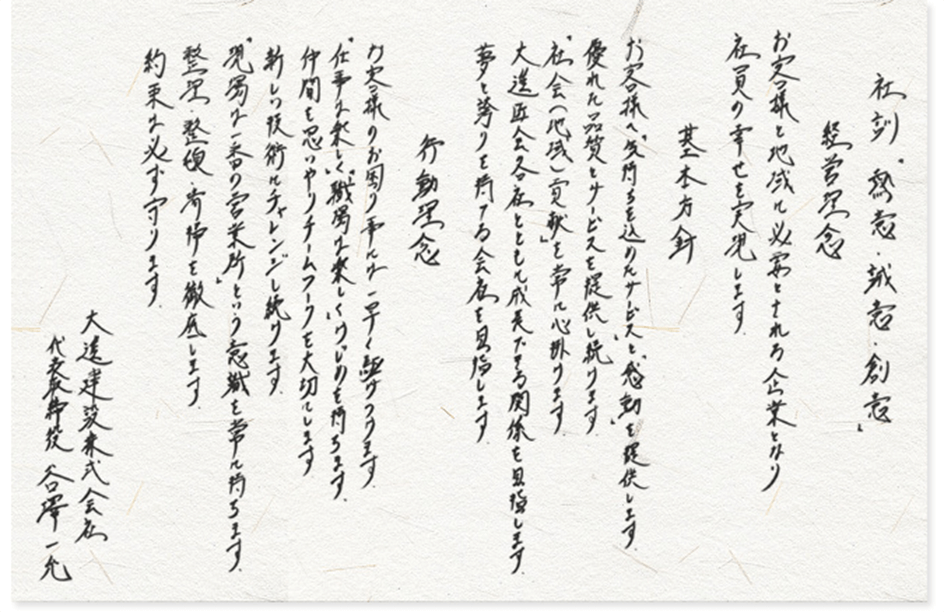 社訓 “熱意・誠意・創意”
経営理念
お客様と地域に必要とされる企業となり
社員の幸せを実現します
基本方針
お客様へ“気持ちを込めたサービス”と“感動”を提供します
優れた品質とサービスを提供し続けます
“社会（地域）貢献”を常に心掛けます
大送匠会各社とともに成長できる関係を目指します
夢と誇りを持てる会社を目指します
行動理念
お客様のお困り事には一早く駆けつけます
“仕事は楽しく”“職場は楽しく”けじめを持ちます
仲間を思いやりチームワークを大切にします
新しい技術にチャレンジし続けます
“現場は一番の営業所”という意識を常に持ちます
整理・整頓・清掃を徹底します
約束は必ず守ります
大送建設株式会社
代表取締役 谷澤 一允